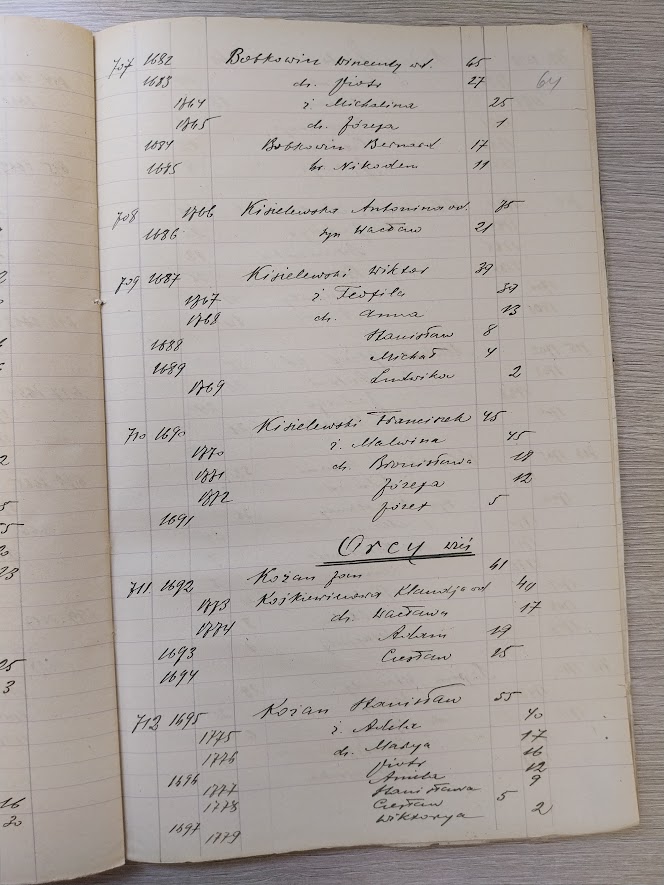 707 1682 Bobkowin Wincenty wd. 65
1683 dz. Piotr 27
64
1764 ż. Michalina 25
1765 dz. Józefa 1
1684 Bobkowin Bernard 17
1685 br. Nikodem 11
708 1766 Kisielewska Antonina wd. 75
1686 syn Wacław 21
709 1687 Kisielewski Wiktor 39
1767 ż. Teofila 39
1768 dz. Anna 13
1688 Stanisław 8
1689 Michał 4
1769 Ludwika 2
710 1690 Kisielewski Franciszek 45
1770 ż. Malwina 45
1771 dz. Bronisława 18
1772 Józefa 12
1691 Józef 5
Orcy wieś
711 1692 Kozan Jan 41
1773 Klaudja wd 40
1774 dz. Wacława 17
1693 Adam 19
1694 Czesław 15
712 1695 Kozan Stanisław 55
1775 ż. Adela 40
1776 dz. Marya 17
1696 Piotr 16
1777 Aniela 12
1778 Stanisława 9
1697 Czesław 5
1779 Wiktorya 2